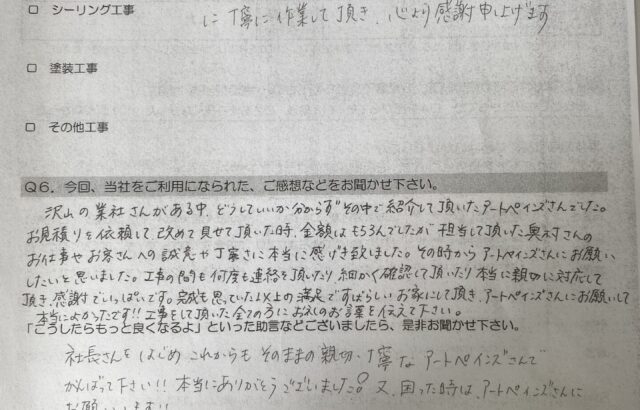 □ シーリング工事
に丁寧に作業して頂き、心より感謝申し上げます
□ 塗装工事
□ その他工事
Q6. 今回、当社をご利用になられた、ご感想などをお聞かせ下さい。
沢山の業社さんがある中、どうしていいか分からず その中で紹介して頂いたアートペインズさんでした。
お見積りを依頼して 改めて見せて頂いた時、金額はもちろんでしたが 担当して頂いた奥村さんの
お仕事やお客さんへの誠意や丁寧さに本当に感げき致しました。その時から アートペインズさんにお願い
したいと思いました。工事の間も何度も連絡を頂いたり 細かく確認して頂いたり 本当に親切に対応して
頂き、感謝でいっぱいです。完成も思っていた以上の満足ですばらしいお家にして頂き、アートペインズさんにお願いして
本当によかったです!! 工事をして頂いた全ての方にお礼のお言葉を伝えて下さい。
「こうしたらもっと良くなるよ」といった助言などございましたら、是非お聞かせ下さい。
社長さんをはじめ これからも そのままの親切、丁寧な アートペインズさんで
がんばって下さい!! 本当にありがとうございました。 又、困った時は アートペインズさんに
お願いします!!